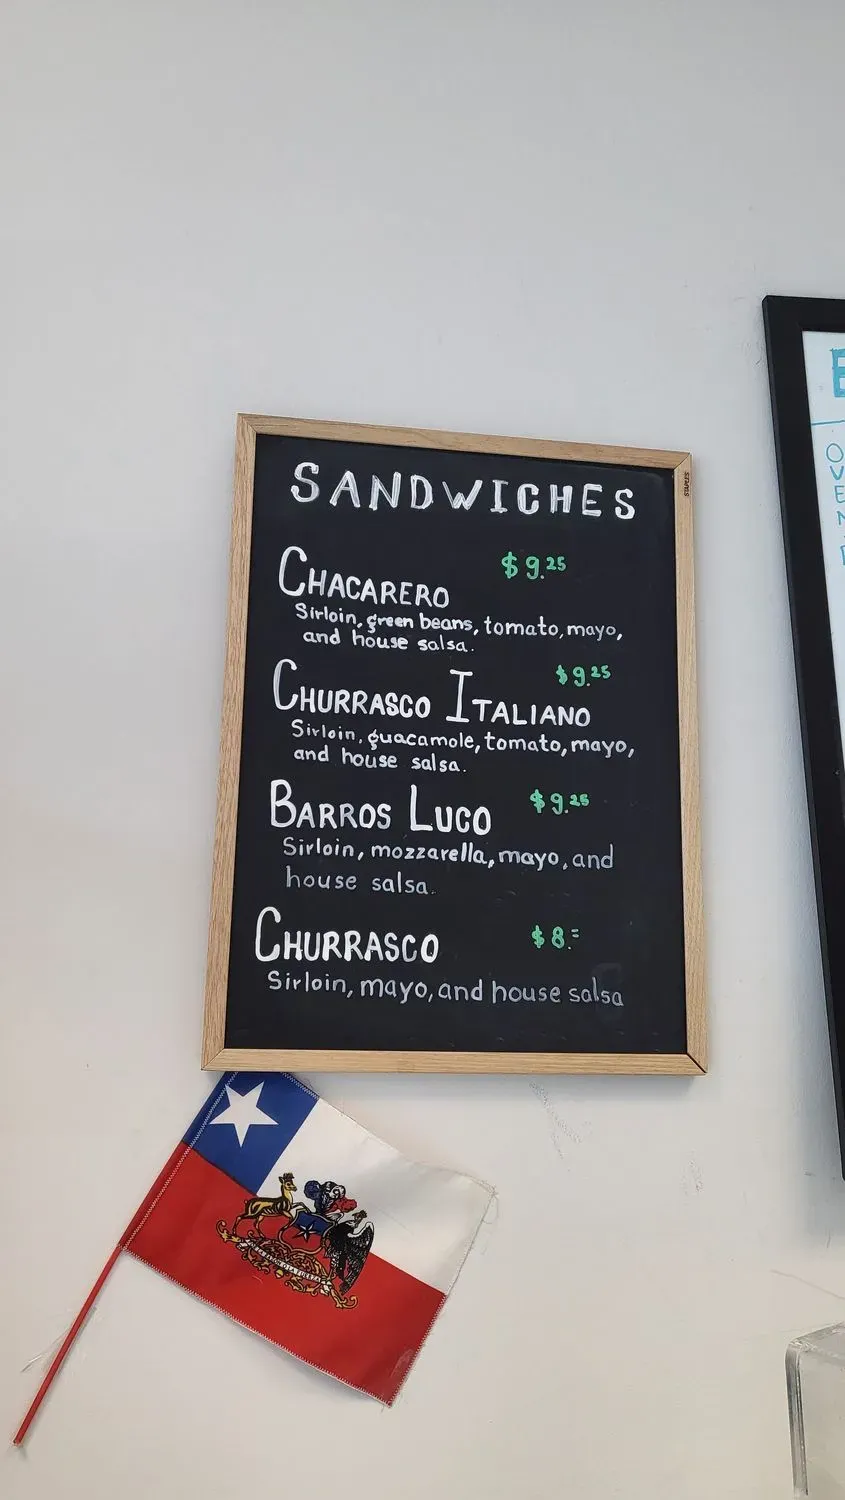 SANDWICHES
STAPLES
$9.25
CHACARERO
Sirloin, green beans, tomato, mayo,
and house salsa.
$9.25
CHURRASCO ITALIANO
Sirloin, guacamole, tomato, mayo,
and house salsa.
BARROS LUCO $9.25
Sirloin, mozzarella, mayo, and
house salsa.
CHURRASCO $8.=
Sirloin, mayo, and house salsa